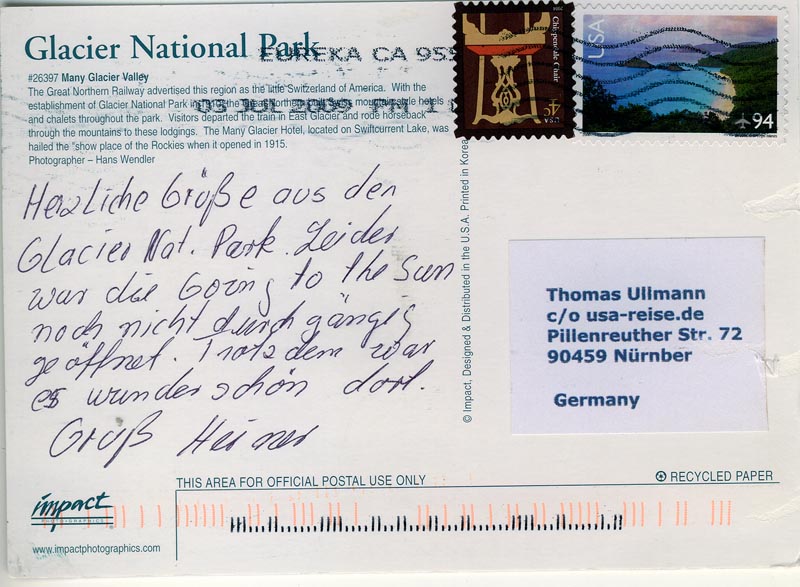 Glacier National Park
#26397 Many Glacier Valley
The Great Northern Railway advertised this region as the little Switzerland of America. With the
establishment of Glacier National Park in
and chalets throughout the park. Visitors departed the train in East Glacier and rode horseback
through the mountains to these lodgings. The Many Glacier Hotel, located on Swiftcurrent Lake, was
hailed the "show place of the Rockies when it opened in 1915.
Photographer – Hans Wendler
EUREKA CA 955
03 JUL 2009 PM 1
Chippendale Chair
USA
4¢
2004
USA
94
Herzliche Grüße aus den
Glacier Nat. Park. Leider
war die Going to the Sun
noch nicht durchgängig
geöffnet. Trotzdem war
es wunderschön dort.
Gruß Heiner
© Impact, Designed & Distributed in the U.S.A. Printed in Korea
Thomas Ullmann
c/o usa-reise.de
Pillenreuther Str. 72
90459 Nürnber
Germany
THIS AREA FOR OFFICIAL POSTAL USE ONLY
RECYCLED PAPER
impact
PHOTOGRAPHICS
www.impactphotographics.com